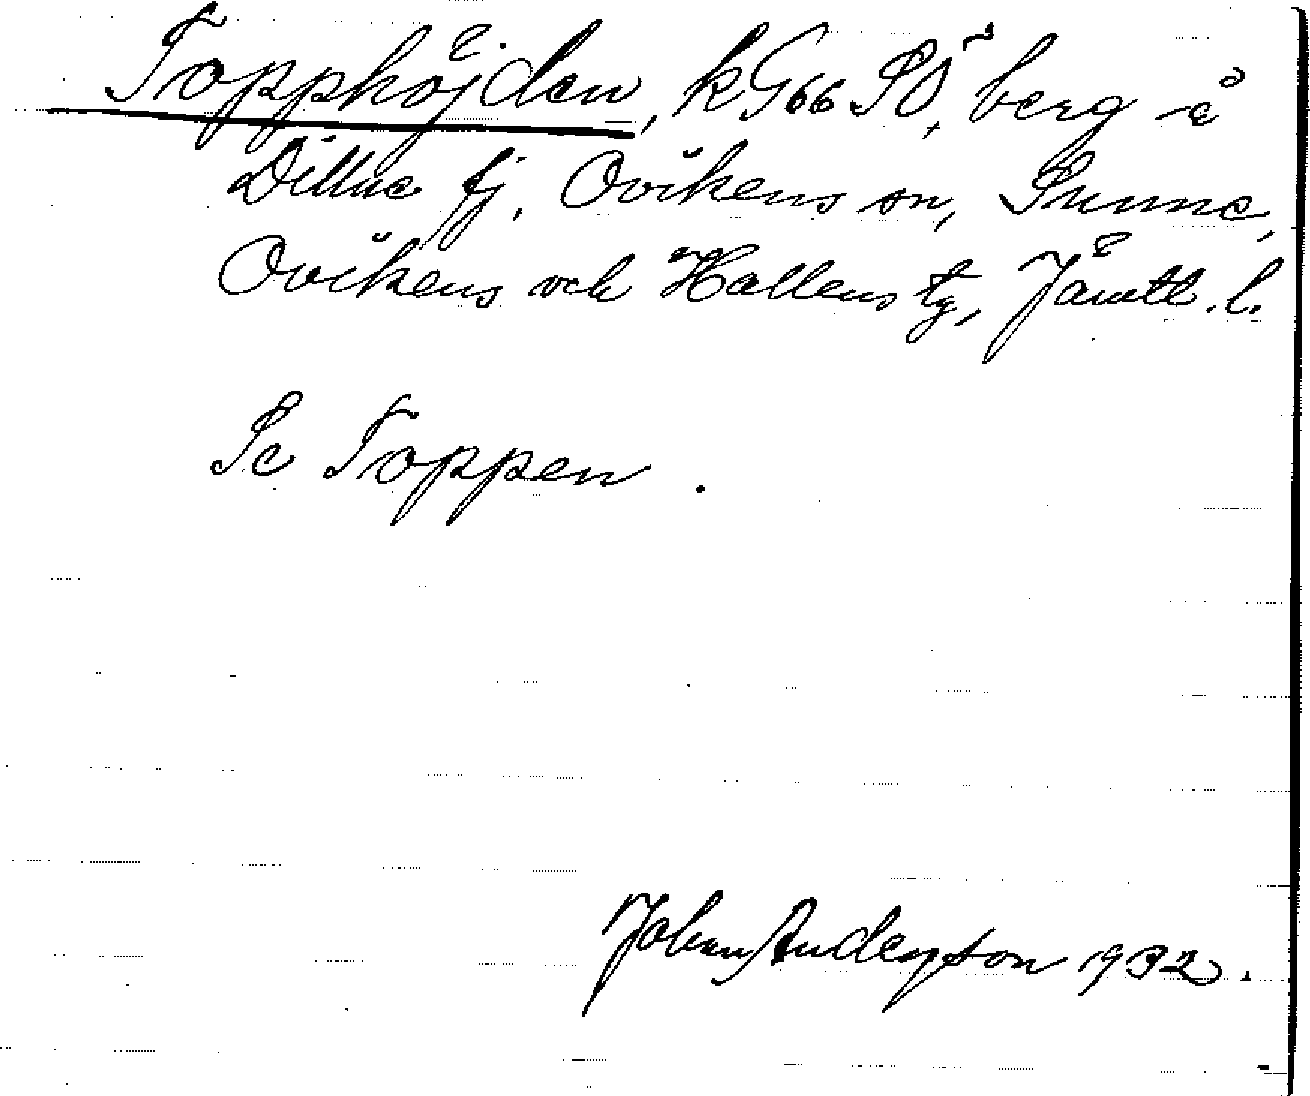 Topphöjden, kG66 SÖ, berg i
Dillne fj, Ovikens sn, Sunne,
Ovikens och Hallens tg, Jämtl. l.
Se Toppen.
Johan Anderson 1932.